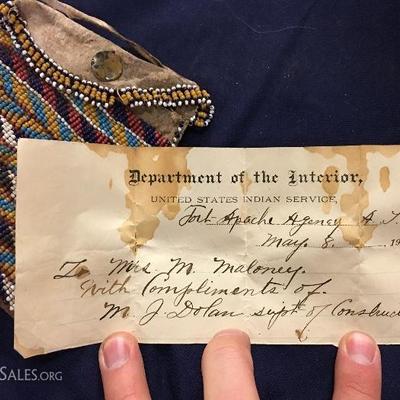 Department of the Interior,
UNITED STATES INDIAN SERVICE,
Fort Apache Agency A.T.
May. 8. 19
To Mrs M. Maloney.
With Compliments of.
M. J. Dolan supt of Construc
SALES.ORG